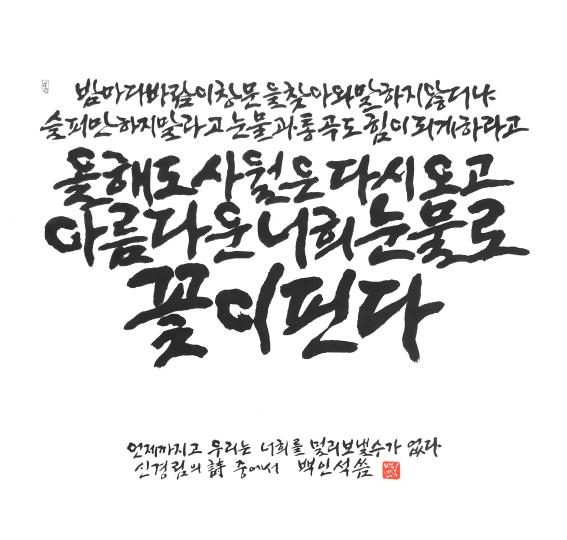 밤마다 바람이 창문을 찾아와 말하지 않더냐
슬퍼만 하지 말라고 눈물과 통곡도 힘이 되게 하라고
올해도 사월은 다시 오고
아름다운 너희 눈물로
꽃이 핀다
언제까지고 우리는 너희를 멀리 보낼 수가 없다
신경림의 詩 중에서 백인석 씀